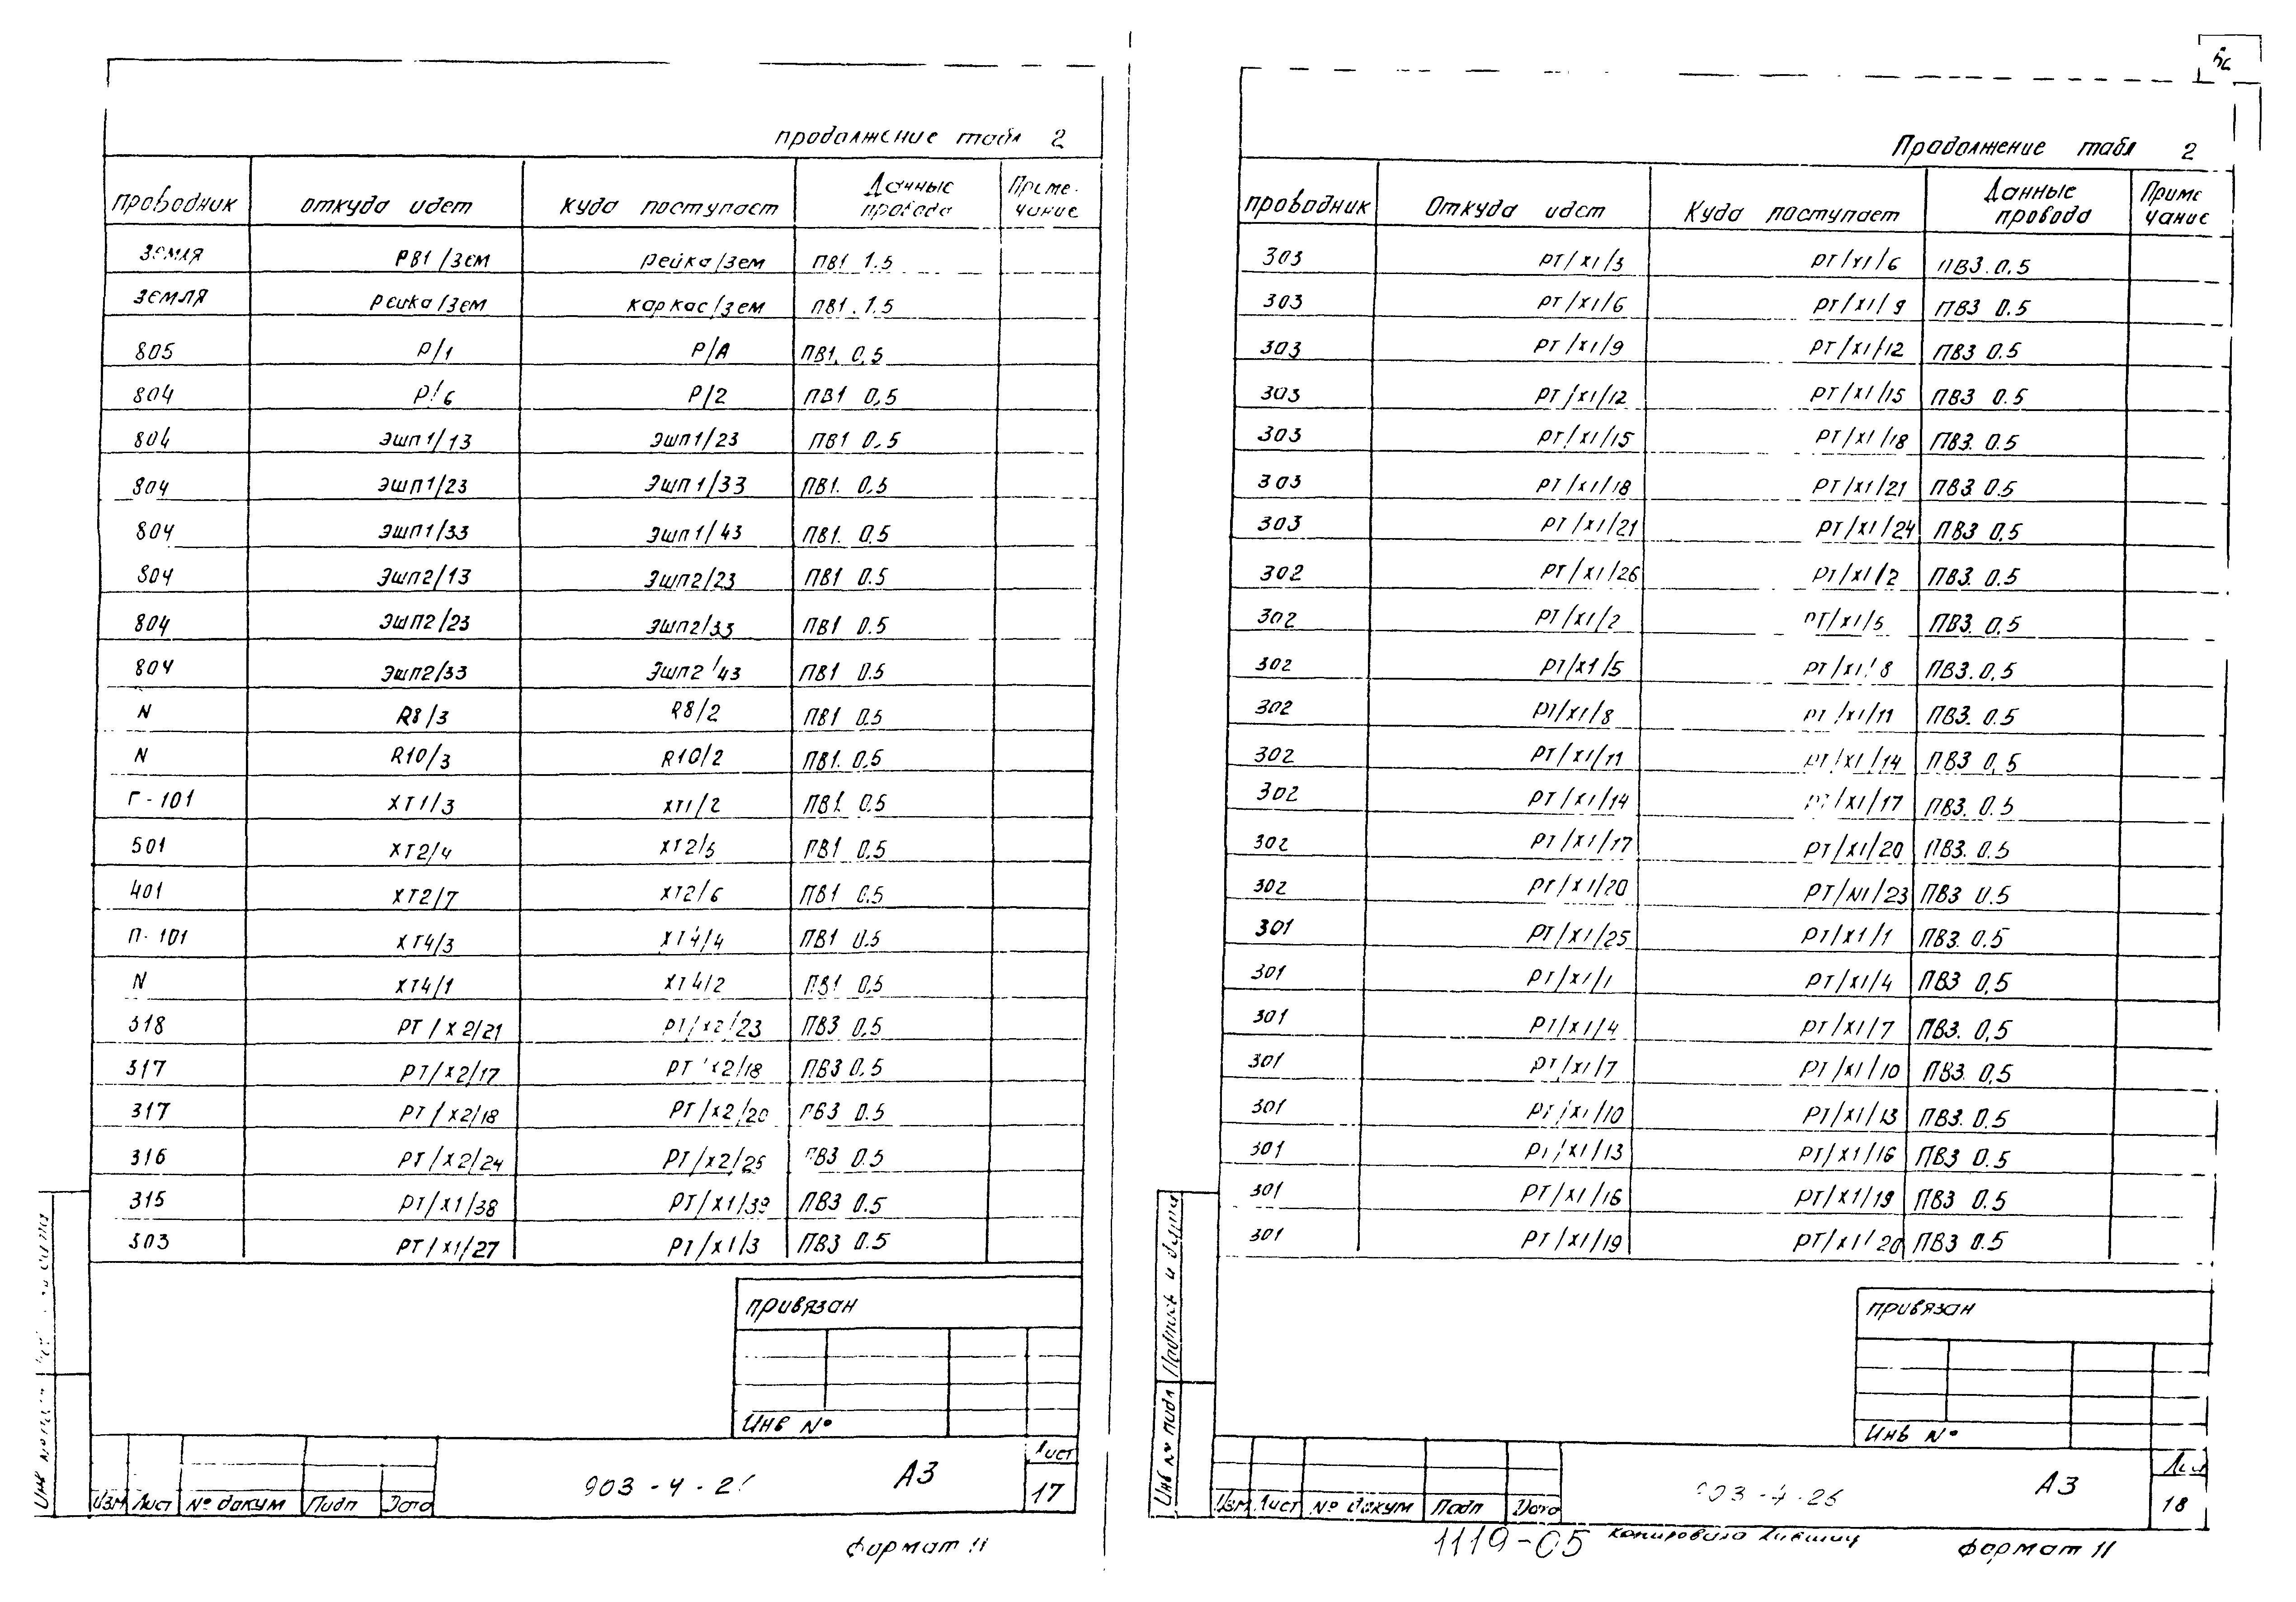 продолжение табл 2
проводник откуда идет куда поступает Данные провода Приме- чание
земля РВ1/зем рейка/зем ПВ1 1.5
земля рейка/зем каркас/зем ПВ1. 1.5
805 Р/1 Р/А ПВ1. 0,5
804 Р/6 Р/2 ПВ1 0,5
804 ЭШП1/13 ЭШП1/23 ПВ1 0,5
804 ЭШП1/23 ЭШП1/33 ПВ1. 0,5
804 ЭШП1/33 ЭШП1/43 ПВ1. 0,5
804 ЭШП2/13 ЭШП2/23 ПВ1 0.5
804 ЭШП2/23 ЭШП2/33 ПВ1 0.5
804 ЭШП2/33 ЭШП2/43 ПВ1 0.5
N R8/3 R8/2 ПВ1 0.5
N R10/3 R10/2 ПВ1. 0,5
Г-101 ХТ1/3 ХТ1/2 ПВ1. 0.5
501 ХТ2/4 ХТ2/5 ПВ1 0,5
401 ХТ2/7 ХТ2/6 ПВ1 0.5
П-101 ХТ4/3 ХТ4/4 ПВ1 0.5
N ХТ4/1 ХТ4/2 ПВ1 0,5
318 РТ/Х2/21 РТ/Х2/23 ПВ3 0,5
317 РТ/Х2/17 РТ/Х2/18 ПВ3 0,5
317 РТ/Х2/18 РТ/Х2/20 ПВ3 0.5
316 РТ/Х2/24 РТ/Х2/25 ПВ3 0.5
315 РТ/Х1/38 РТ/Х1/39 ПВ3 0.5
303 РТ/Х1/27 РТ/Х1/3 ПВ3 0.5
привязан
Инв №
Изм Лист № докум Подп Дата
903-4-2
А3
Лист
17
Формат 11
Продолжение табл 2
проводник Откуда идет Куда поступает Данные провода Приме чание
303 РТ/Х1/3 РТ/Х1/6 ПВ3. 0,5
303 РТ/Х1/6 РТ/Х1/9 ПВ3 0.5
303 РТ/Х1/9 РТ/Х1/12 ПВ3 0.5
303 РТ/Х1/12 РТ/Х1/15 ПВ3 0.5
303 РТ/Х1/15 РТ/Х1/18 ПВ3. 0.5
303 РТ/Х1/18 РТ/Х1/21 ПВ3. 0.5
303 РТ/Х1/21 РТ/Х1/24 ПВ3 0,5
302 РТ/Х1/26 РТ/Х1/2 ПВ3. 0.5
302 РТ/Х1/2 РТ/Х1/5 ПВ3. 0,5
302 РТ/Х1/5 РТ/Х1/8 ПВ3. 0,5
302 РТ/Х1/8 РТ/Х1/11 ПВ3. 0.5
302 РТ/Х1/11 РТ/Х1/14 ПВ3 0,5
302 РТ/Х1/14 РТ/Х1/17 ПВ3. 0.5
302 РТ/Х1/17 РТ/Х1/20 ПВ3. 0.5
302 РТ/Х1/20 РТ/N1/23 ПВ3 0.5
301 РТ/Х1/25 РТ/Х1/1 ПВ3. 0.5
301 РТ/Х1/1 РТ/Х1/4 ПВ3 0,5
301 РТ/Х1/4 РТ/Х1/7 ПВ3. 0,5
301 РТ/Х1/7 РТ/Х1/10 ПВ3. 0,5
301 РТ/Х1/10 РТ/Х1/13 ПВ3. 0.5
301 РТ/Х1/13 РТ/Х1/16 ПВ3 0.5
301 РТ/Х1/16 РТ/Х1/19 ПВ3 0.5
301 РТ/Х1/19 РТ/Х1/20 ПВ3 0.5
привязан
Инв №
Инв № подл Подпись и дата
Изм Лист № докум Подп Дата
903-4-26
А3
Лист
18
1119-05 копировала
Формат 11